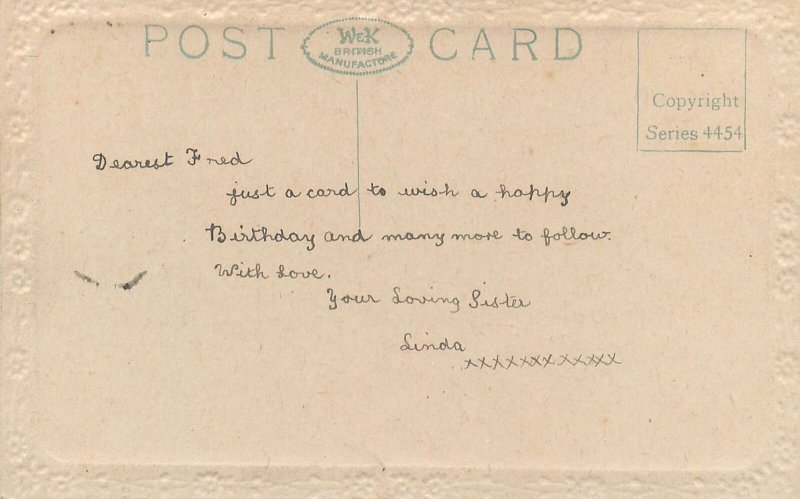 POST CARD
W&K
BRITISH
MANUFACTURE
Copyright
Series 4454
Dearest Fred
just a card to wish a happy
Birthday and many more to follow.
With Love.
Your Loving Sister
Linda
xxxxxxx xxxxx